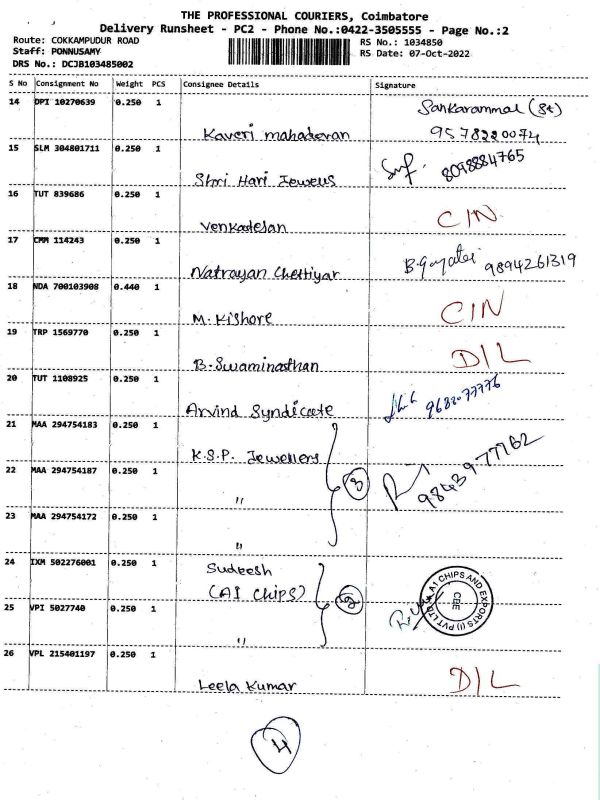 THE PROFESSIONAL COURIERS, Coimbatore
Delivery Runsheet - PC2 - Phone No.:0422-3505555 - Page No.:2
Route: COKKAMPUDUR ROAD
RS No.: 1034850
Staff: PONNUSAMY
RS Date: 07-Oct-2022
DRS No.: DCJB103485002
S No Consignment No Weight PCS Consignee Details Signature
14 DPI 10270639 0.250 1 Sankarammal (St)
Kaveri mahadevan 9578220074
15 SLM 304801711 0.250 1 8098884765
Shri Hari Jewels
16 TUT 839686 0.250 1 CIN
Venkadesan
17 CMM 114243 0.250 1 B.Gayatri 9894261319
Natrayan Chettiyar
18 NDA 700103908 0.440 1 CIN
M. Kishore
19 TRP 1569770 0.250 1 D/L
B. Swaminathan
20 TUT 1108925 0.250 1
Arvind Syndicate
21 MAA 294754183 0.250 1
K.S.P. Jewellers
22 MAA 294754187 0.250 1 3
" 
23 MAA 294754172 0.250 1
"
24 IXM 502276001 0.250 1 Sudeesh
(A1 Chips) 2
A1 CHIPS AND EXPORTS (I) PVT LTD
CBE
25 VPI 5027740 0.250 1
"
26 VPL 215401197 0.250 1 D/L
Leela Kumar
4